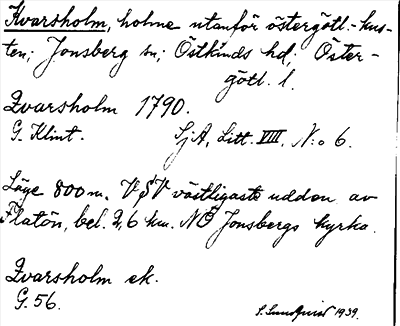 Kvarsholm, holme utanför östergötl.-kus-
ten; Jonsberg sn; Östkinds hd; Öster-
götl. l.
Qvarsholm 1790.
G. Klint. SjA, Litt. VIII, N:o 6.
Läge 800 m. VSV västligaste udden av
Flatön, bel. 2,6 km. NÖ Jonsbergs kyrka.
Qvarsholm ek.
G. 56.
S. Sundqvist 1939.